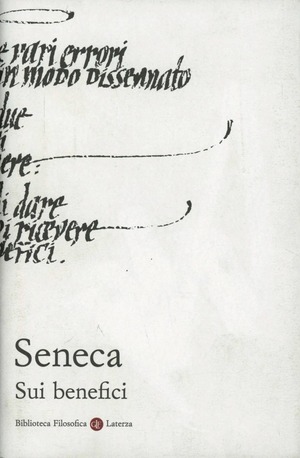 e rari errori
in modo dissennato
due
i
ere:
li dare
di ricevere
efici.
Seneca
Sui benefici
Biblioteca Filosofica
Laterza